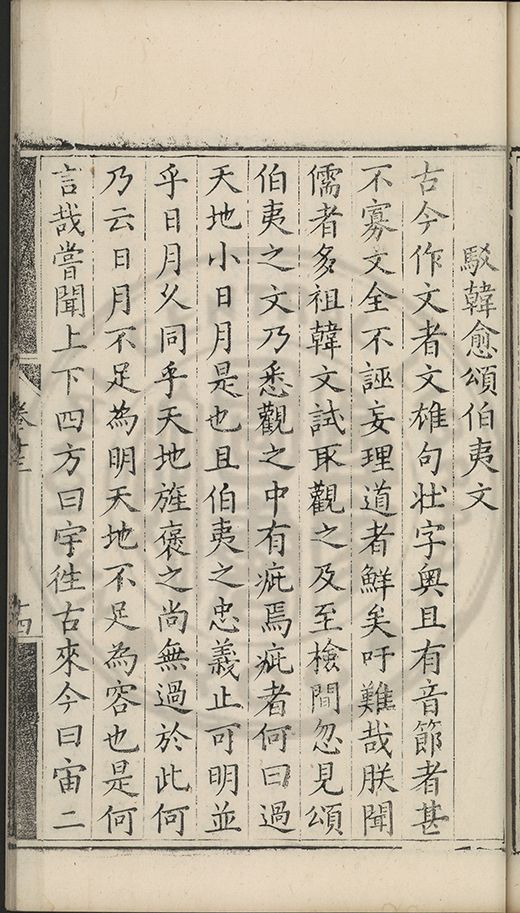 駁韓愈頌伯夷文
古今作文者文雄句壯字奧且有音節者甚
不寡文全不誣妄理道者鮮矣吁難哉朕聞
儒者多祖韓文試取觀之及至檢間忽見頌
伯夷之文乃悉觀之中有疵焉疵者何曰過
天地小日月是也且伯夷之忠義止可明並
乎日月久同乎天地旌褒之尚無過於此何
乃云日月不足為明天地不足為容也是何
言哉嘗聞上下四方曰宇徃古來今曰宙二
卷十三
十四